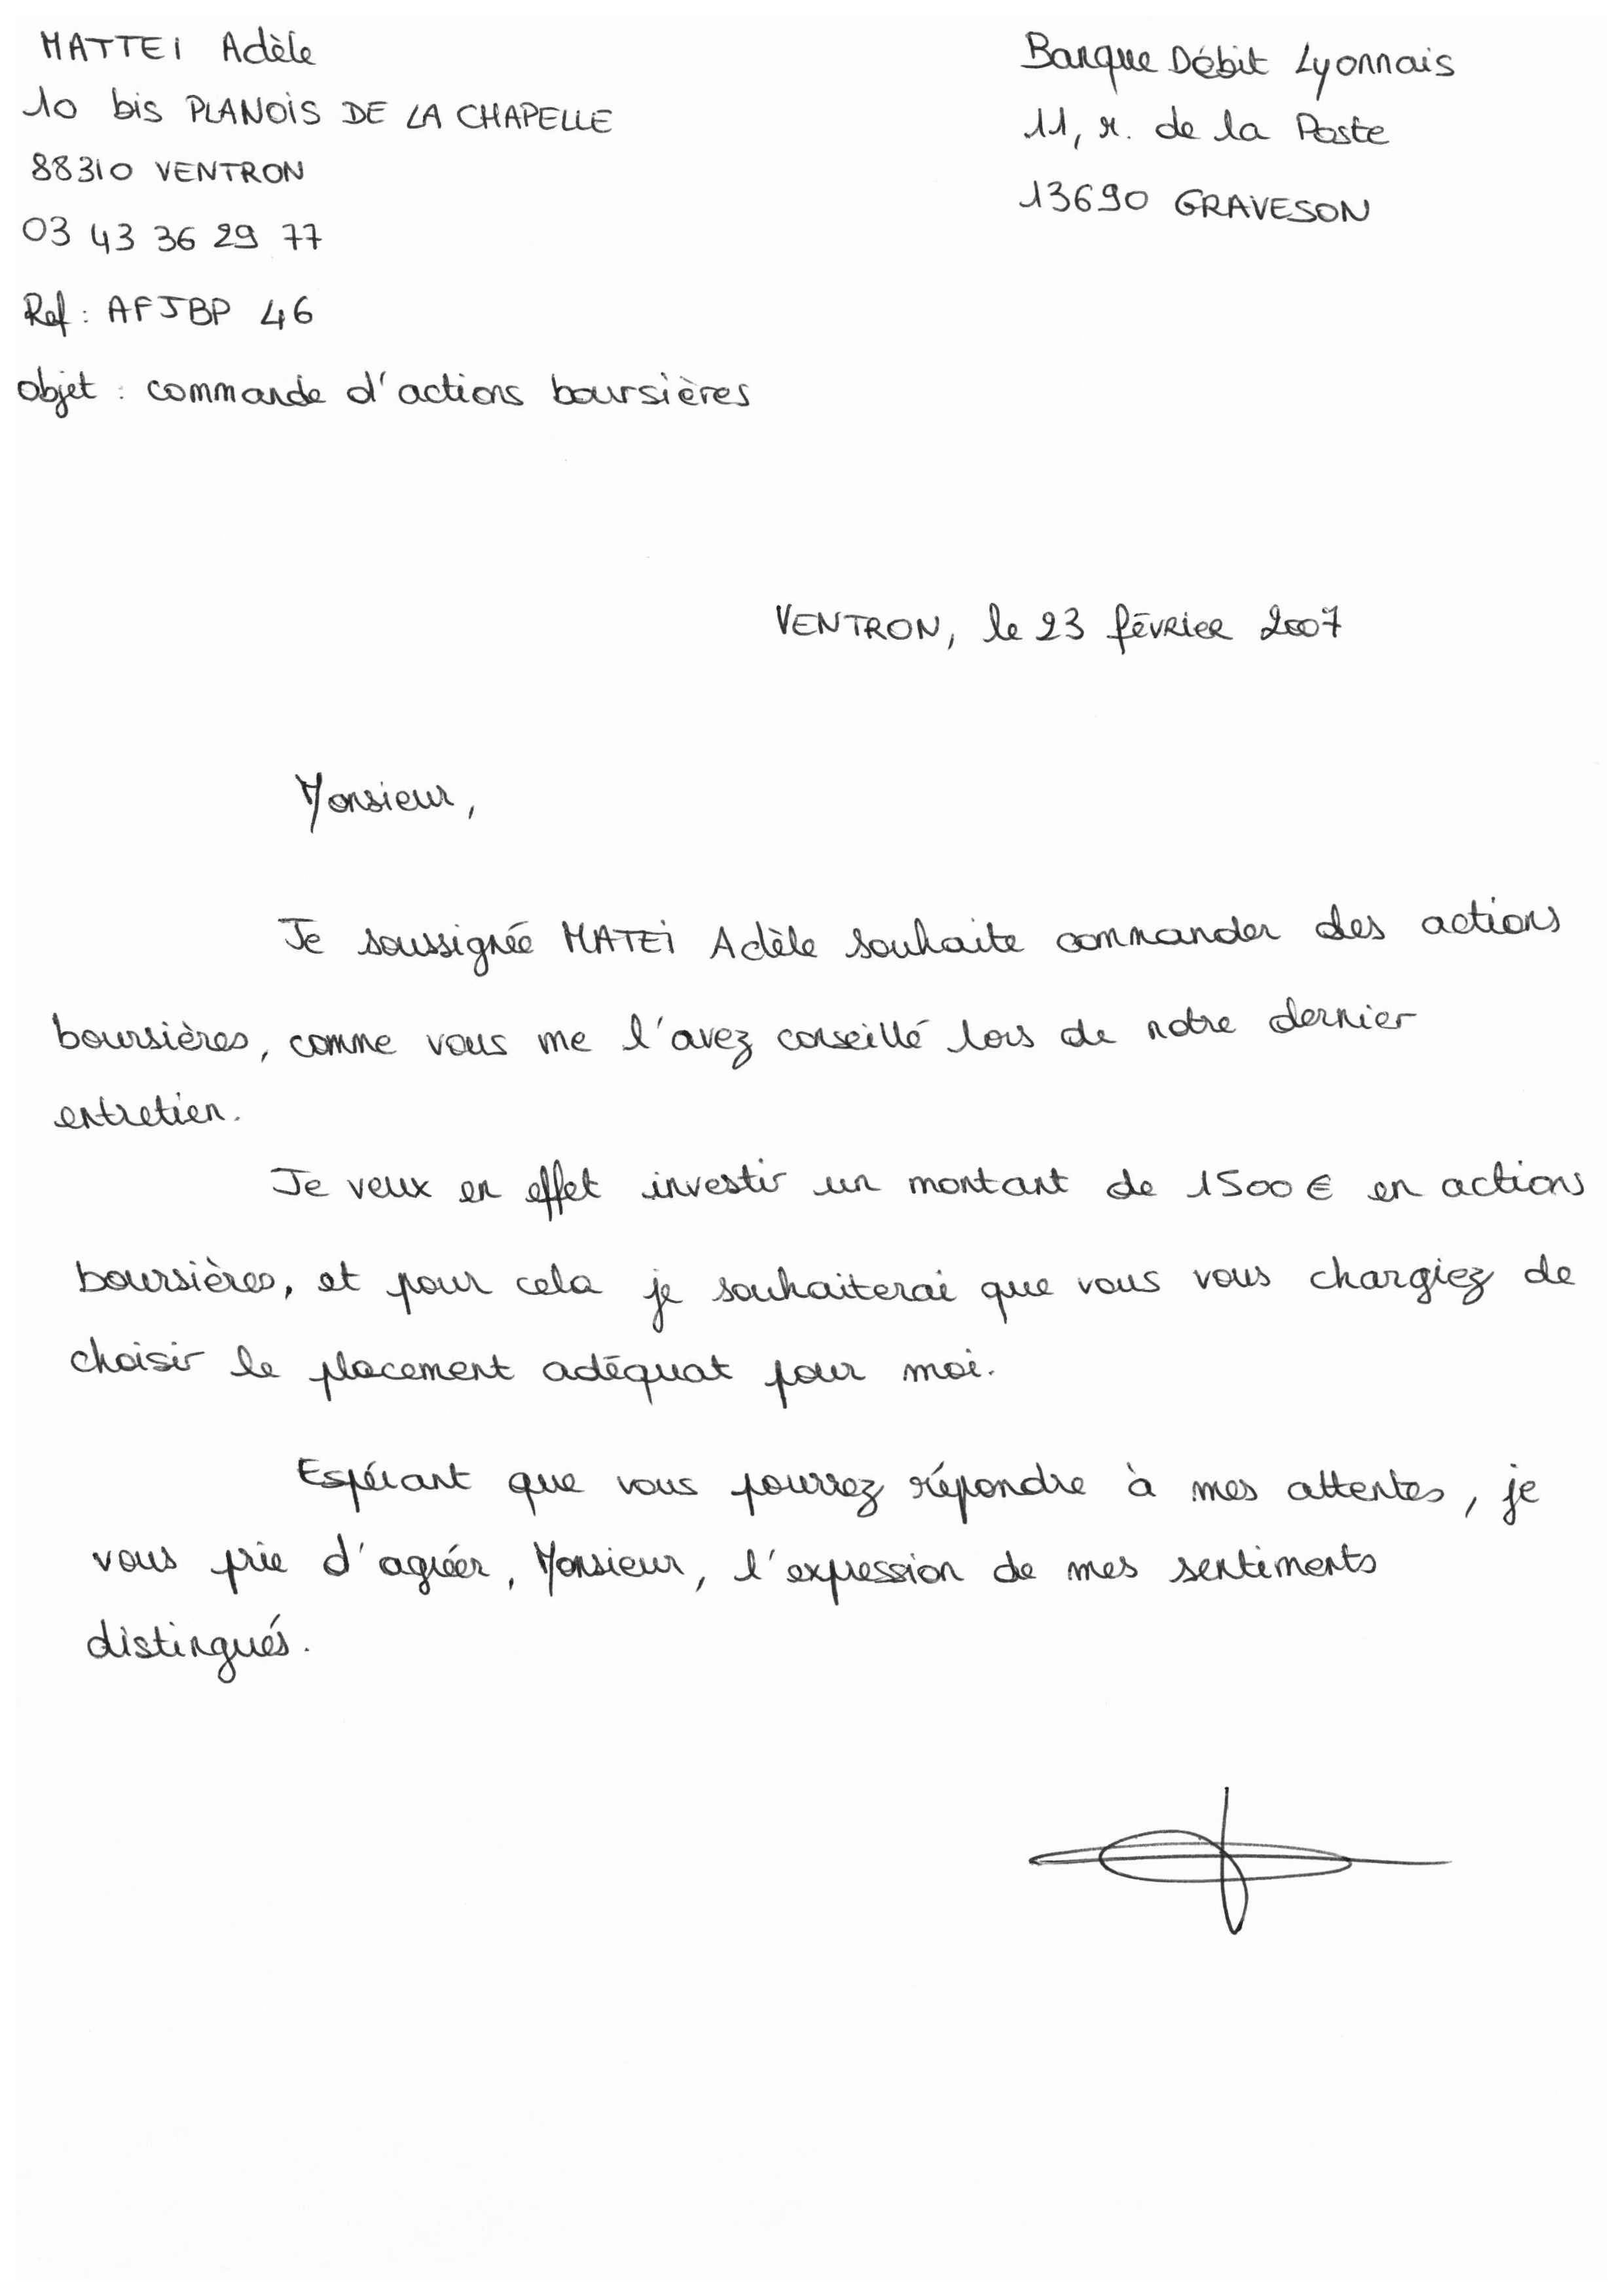 MATTEI Adèle
10 bis PLANOIS DE LA CHAPELLE
88310 VENTRON
03 43 36 29 77
Ref : AFJBP 46
objet : commande d'actions boursières
Banque Débit Lyonnais
11, r. de la Poste
13690 GRAVESON
VENTRON, le 23 février 2007
Monsieur,
Je soussignée MATEI Adèle souhaite commander des actions
boursières, comme vous me l'avez conseillé lors de notre dernier
entretien.
Je veux en effet investir un montant de 1500 € en actions
boursières, et pour cela je souhaiterai que vous vous chargiez de
choisir le placement adéquat pour moi.
Espérant que vous pourrez répondre à mes attentes, je
vous prie d'agréer, Monsieur, l'expression de mes sentiments
distingués.